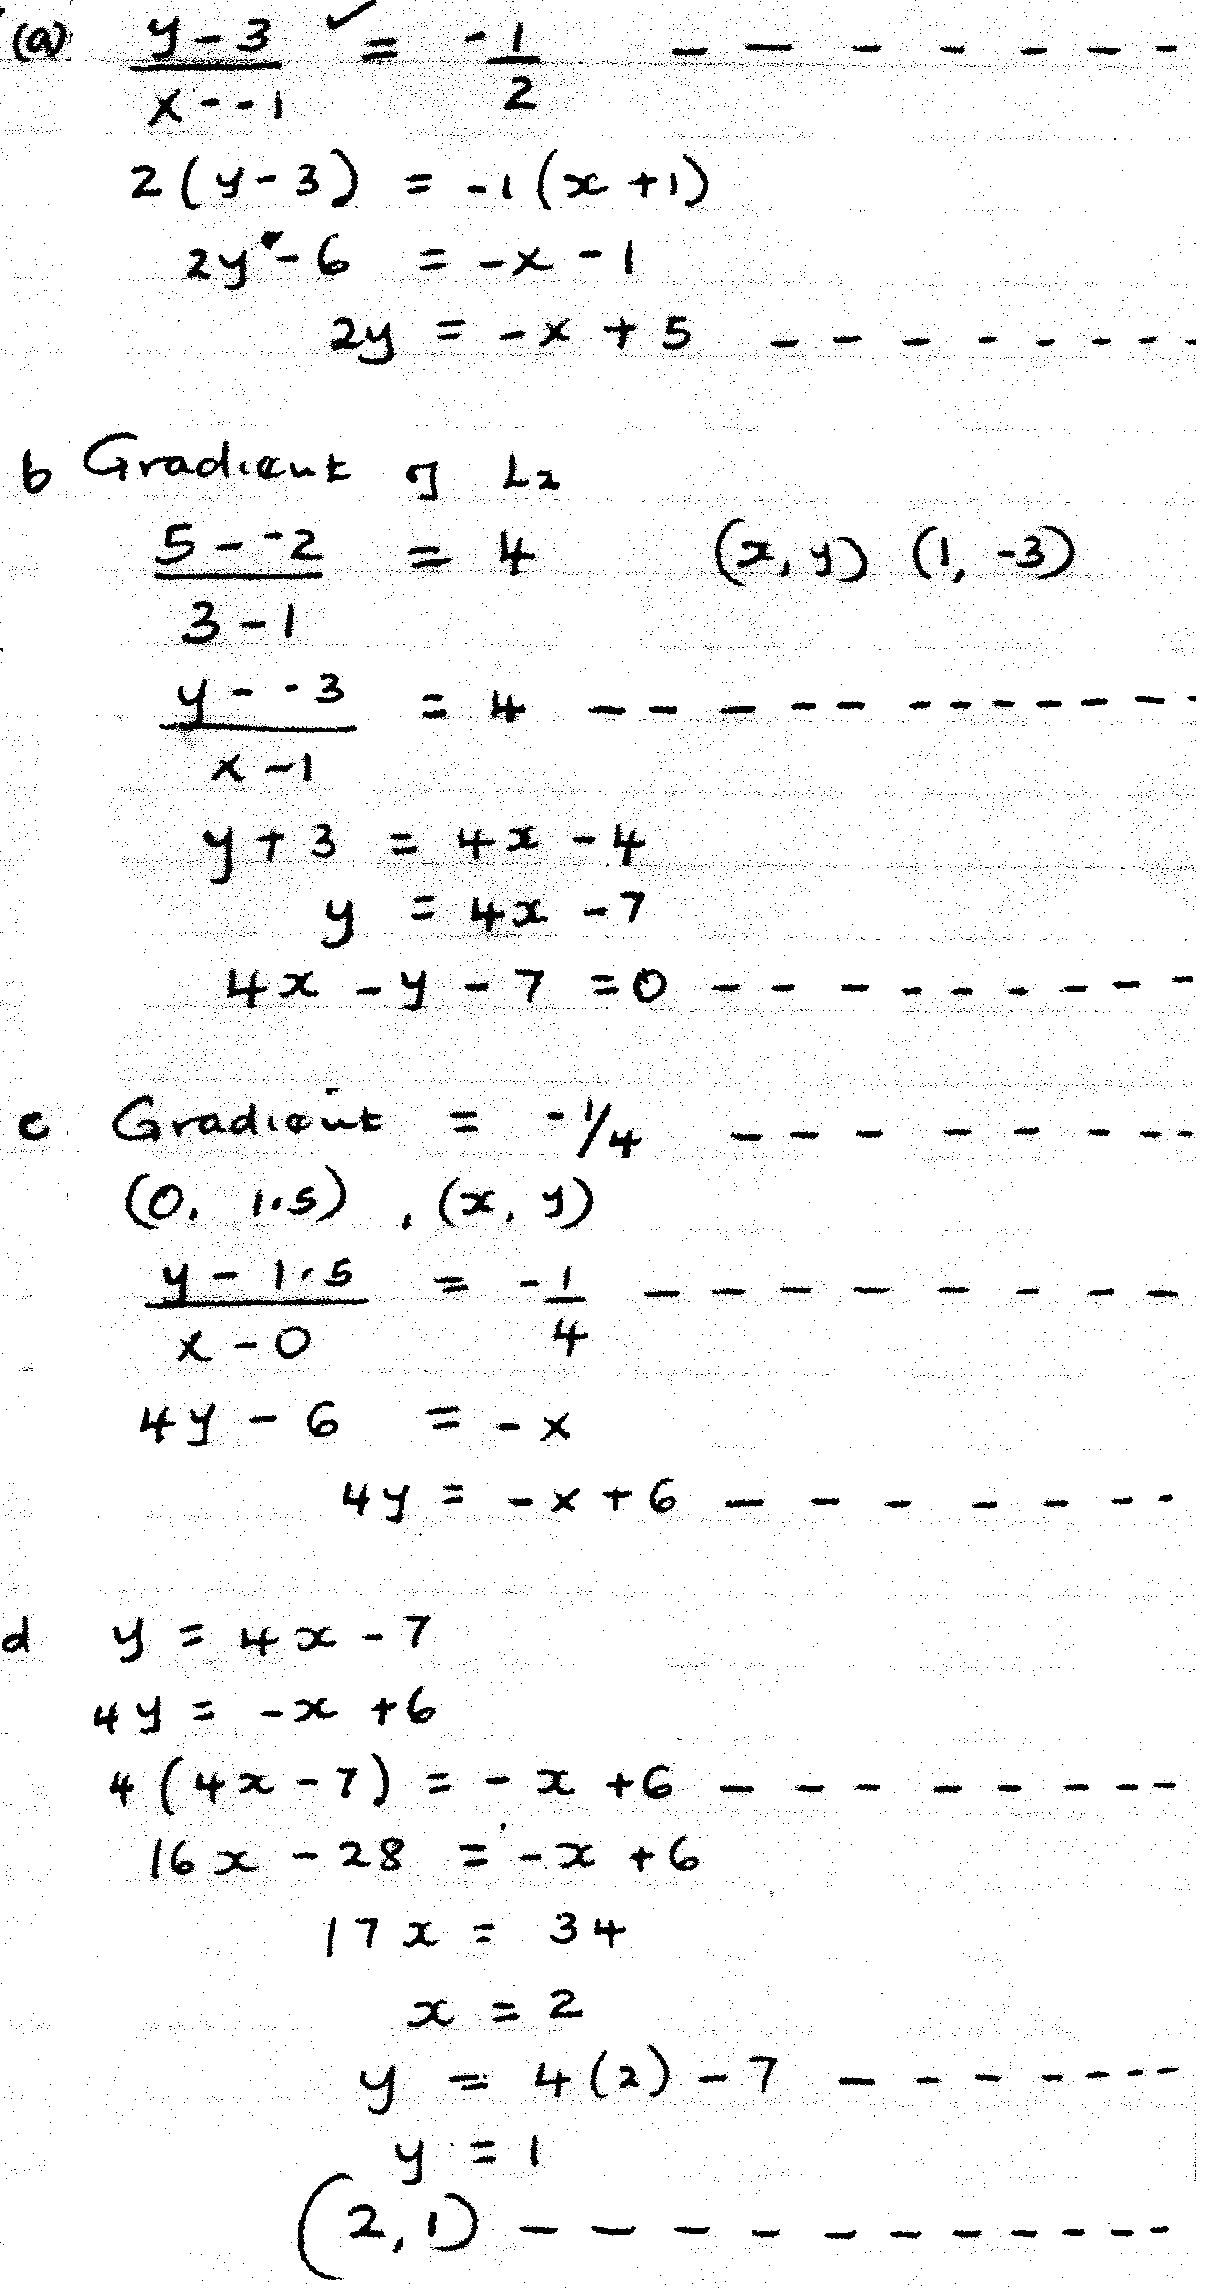 (a) y - 3 / x - -1 = -1/2 - - - - - - -
2(y - 3) = -1(x + 1)
2y - 6 = -x - 1
2y = -x + 5 - - - - - - - -
b Gradient of L2
5 - -2 / 3 - 1 = 4 (x, y) (1, -3)
y - -3 / x - 1 = 4 - - - - - - - - - - - -
y + 3 = 4x - 4
y = 4x - 7
4x - y - 7 = 0 - - - - - - - - -
c Gradient = -1/4 - - - - - - - -
(0, 1.5) , (x, y)
y - 1.5 / x - 0 = -1/4 - - - - - - - -
4y - 6 = -x
4y = -x + 6 - - - - - - -
d y = 4x - 7
4y = -x + 6
4(4x - 7) = -x + 6 - - - - - - - -
16x - 28 = -x + 6
17x = 34
x = 2
y = 4(2) - 7 - - - - - - -
y = 1
(2, 1) - - - - - - - - - -